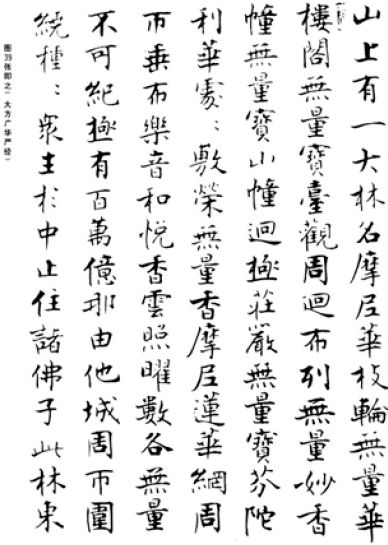 山上有一大林名摩尼華枝輪無量華
樓閣無量寶臺觀周迴布列無量妙香
幢無量寶山幢迴極莊嚴無量寶芬陀
利華處〻敷榮無量香摩尼蓮華網周
帀垂布樂音和悅香雲照曜數各無量
不可紀極有百萬億那由他城周帀圍
繞種〻眾生於中止住諸佛子此林東
图39张即之《大方广华严经》